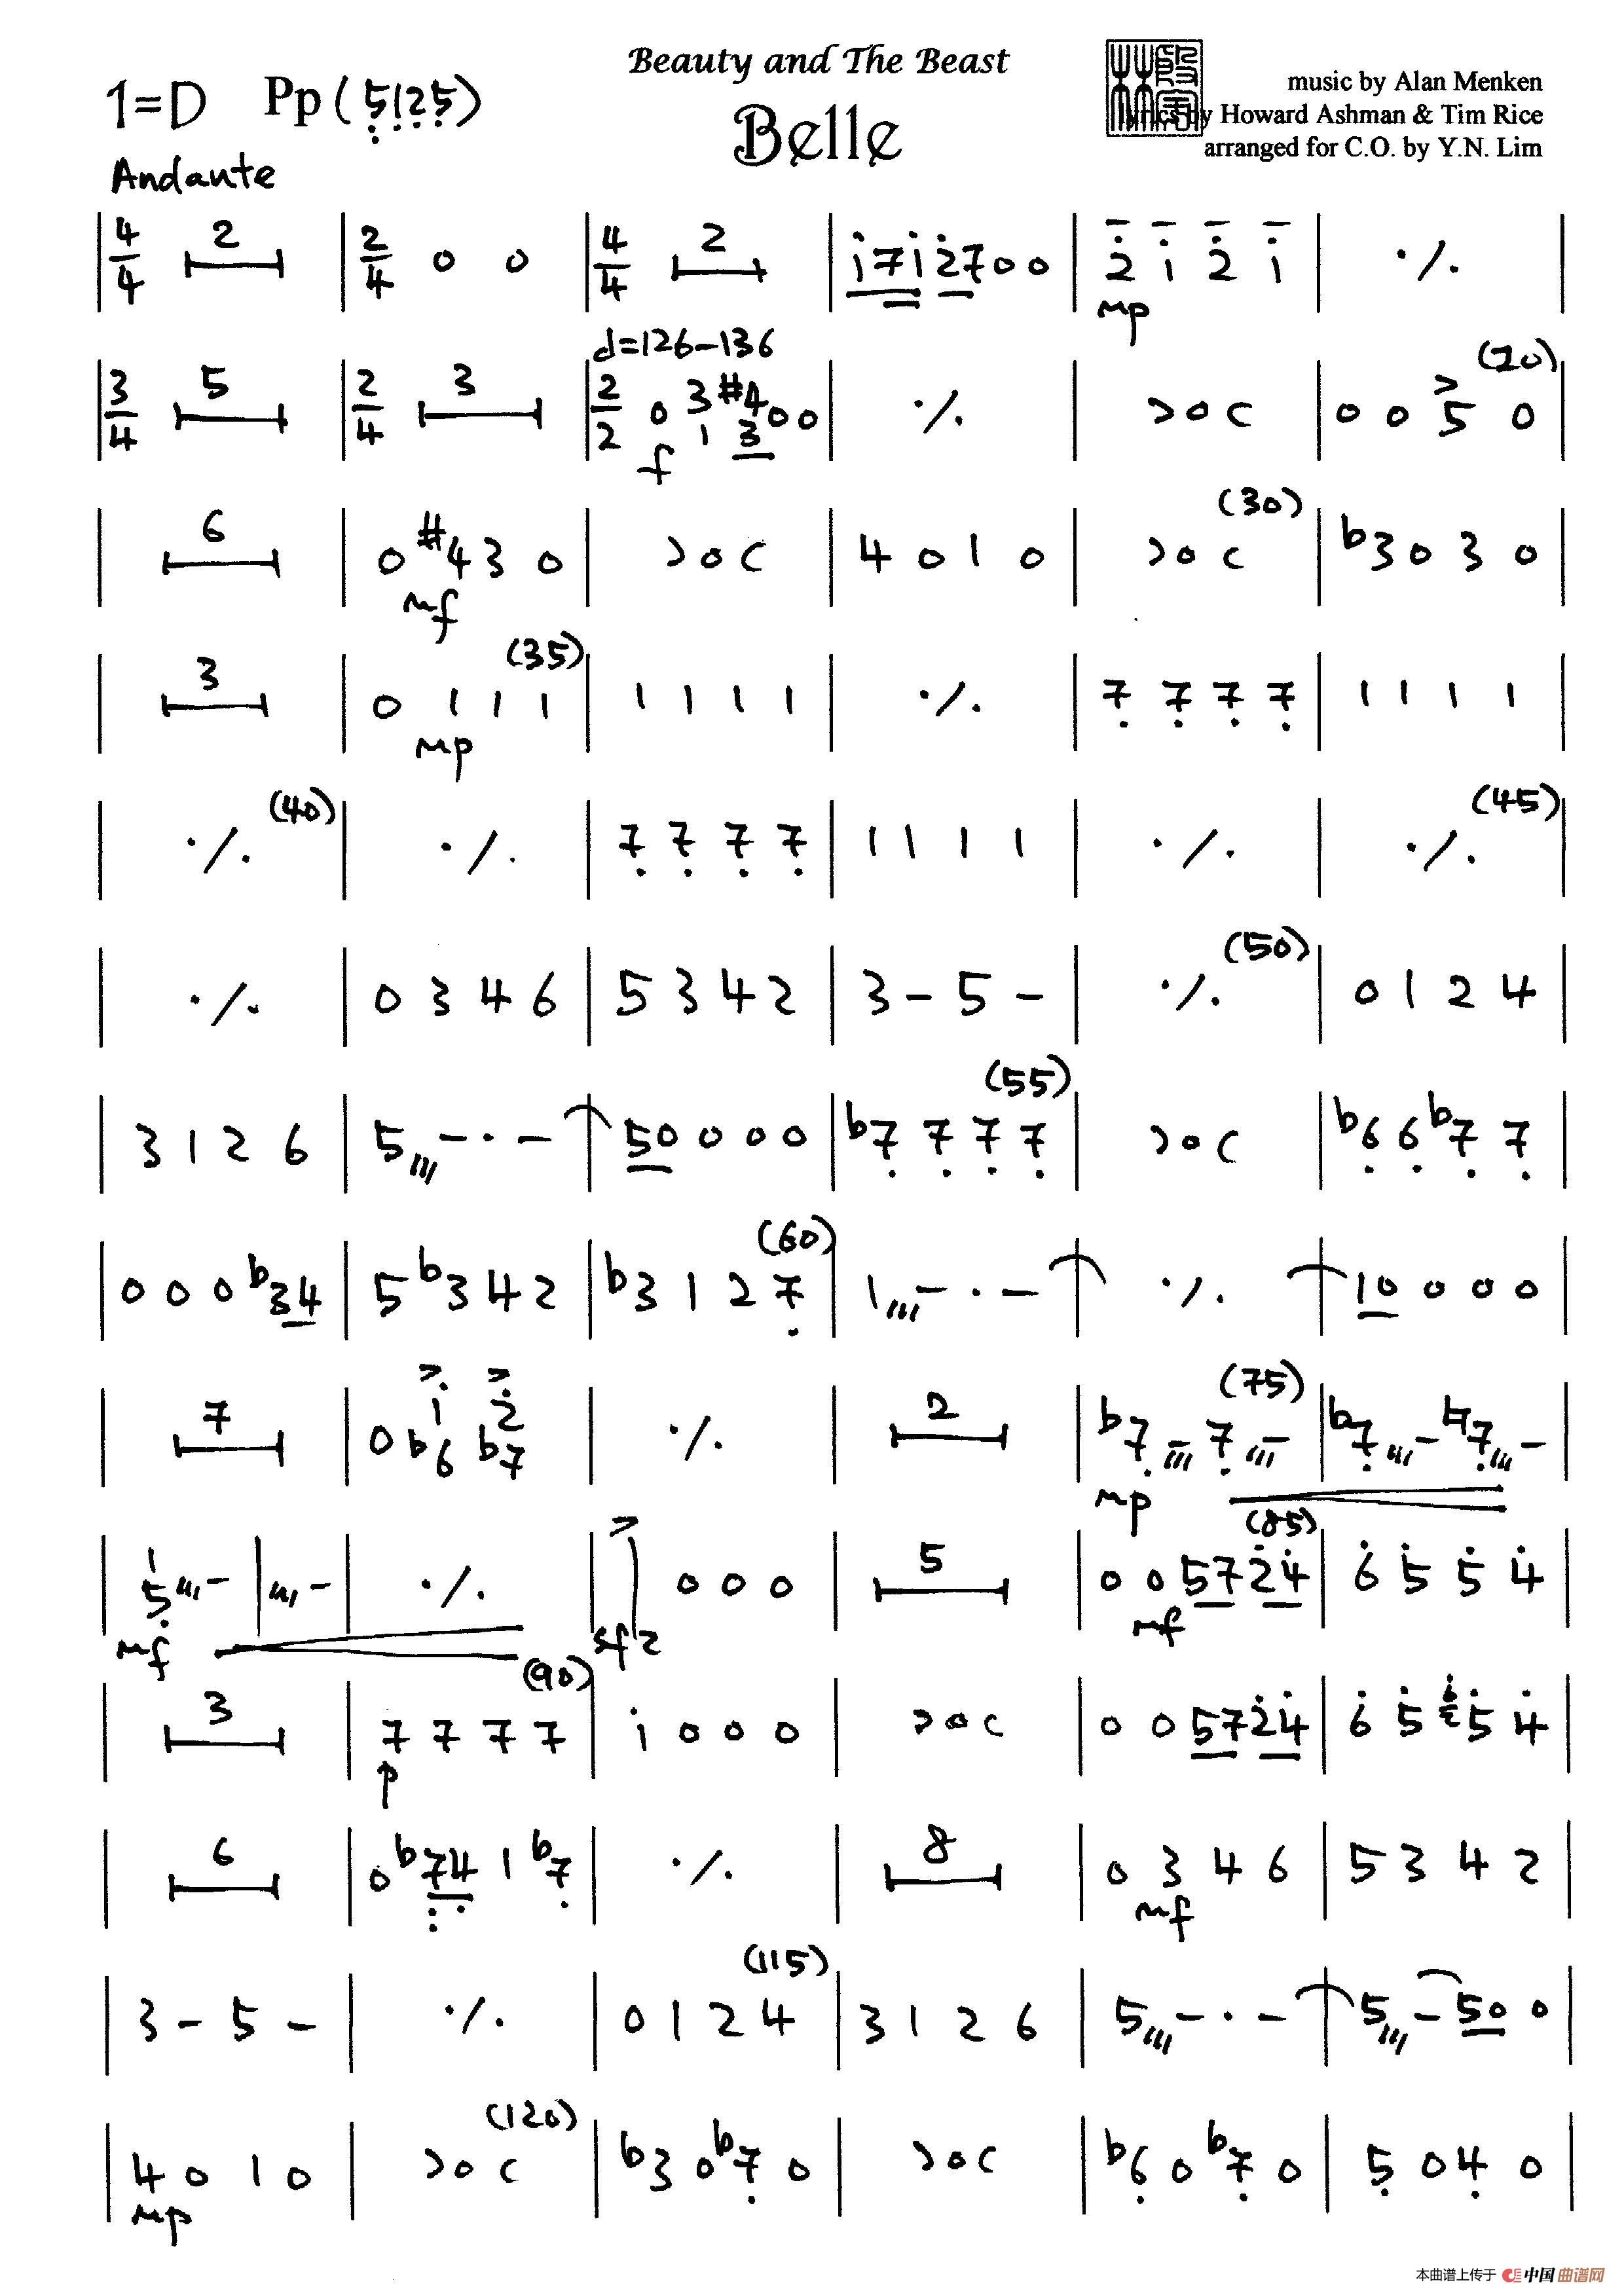 Beauty and The Beast
Belle
1=D Pp (5125)
music by Alan Menken
lyrics by Howard Ashman & Tim Rice
arranged for C.O. by Y.N. Lim
Andante
| 4/4 2 | 2/4 0 0 | 4/4 2 | i 7 i 2 7 0 0 | 2 i 2 i | ·/. |
mp
d=126-136
(20)
| 3/4 5 | 2/4 3 | 2/2 0 3 #4 0 0 | ·/. | >oc | 0 0 5 0 |
1 3
f
(30)
| 6 | 0 #4 3 0 | >oc | 4 0 1 0 | >oc | b3 0 3 0 |
mf
(35)
| 3 | 0 1 1 1 | 1 1 1 1 | ·/. | 7 7 7 7 | 1 1 1 1 |
mp
(40) (45)
| ·/. | ·/. | 7 7 7 7 | 1 1 1 1 | ·/. | ·/. |
(50)
| ·/. | 0 3 4 6 | 5 3 4 2 | 3 - 5 - | ·/. | 0 1 2 4 |
(55)
| 3 1 2 6 | 5/// - · - | 50 0 0 0 | b7 7 7 7 | >oc | b6 6 b7 7 |
(60)
| 0 0 0 b34 | 5 b3 4 2 | b3 1 2 7 | 1/// - · - | ·/. | 10 0 0 0 |
(75)
| 7 | 0 b6 b7 | ·/. | 2 | b7/// - 7/// - | b7/// - ♮7/// - |
i 2
mp
(85)
| 5/// - | /// - | ·/. | 0 0 0 | 5 | 0 0 57 24 | 6 5 5 4 |
1
mf sfz mf
(90)
| 3 | 7 7 7 7 | i 0 0 0 | >oc | 0 0 57 24 | 6 5 6 5 4 |
p
| 6 | 0 b74 1 b7 | ·/. | 8 | 0 3 4 6 | 5 3 4 2 |
mf
(115)
| 3 - 5 - | ·/. | 0 1 2 4 | 3 1 2 6 | 5/// - · - | 5/// - 50 0 |
(120)
| 4 0 1 0 | >oc | b3 0 b7 0 | >oc | b6 0 b7 0 | 5 0 4 0 |
mp
本曲谱上传于 中国曲谱网